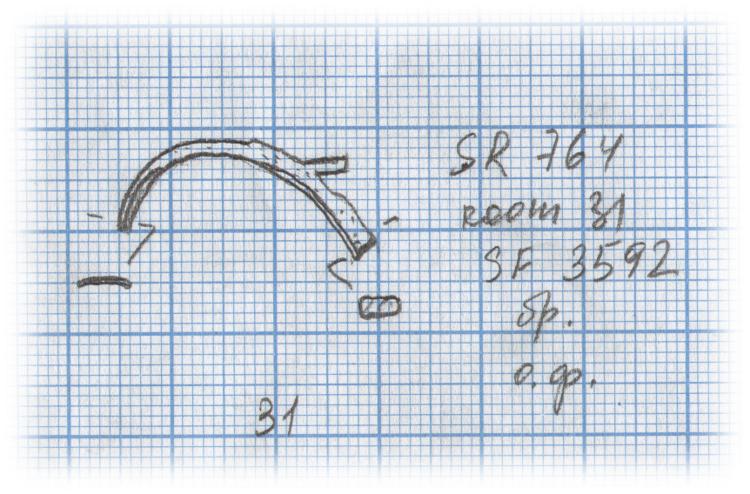 SR 764
room 31
SF 3592
бр.
о.ф.
31